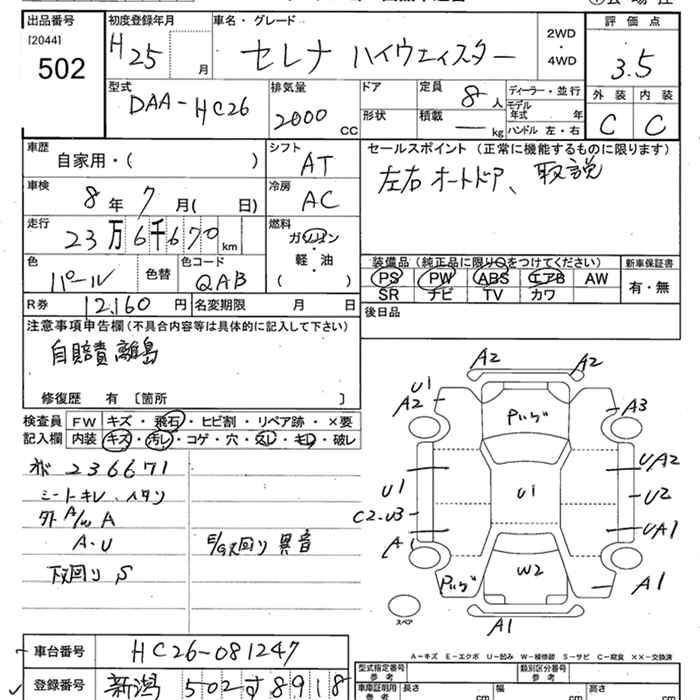 出品番号 初度登録年月 車名・グレード 評価点
[2044] H25 月 セレナ ハイウェイスター 2WD・4WD 3.5
502
型式 排気量 ドア 定員 8人 ディーラー・並行 外装 内装
DAA-HC26 2000 CC 形状 積載 — kg モデル年式 年 C C
ハンドル 左・右
車歴 シフト セールスポイント (正常に機能するものに限ります)
自家用・( ) AT 左右オートドア、取説
車検 冷房
8年 7月( 日) AC
走行 燃料
23万6千670 km ガソリン
軽・油
( )
装備品 (純正品に限り○をつけてください) 新車保証書
色 色替 色コード PS PW ABS エアB AW 有・無
パール QAB SR ナビ TV カワ
R券 12,160円 名変期限 月 日 後日品
注意事項申告欄 (不具合内容等は具体的に記入して下さい)
自賠責離島
修復歴 有 〔箇所 〕
検査員 FW キズ・飛石・ヒビ割・リペア跡・×要
記入欄 内装 キズ・汚レ・コゲ・穴・スレ・キレ・破レ
236671
シートキレ、ヘタリ
外A/W A
A・U E/G又回り 異音
下回り S
A2 A2
U1
A2 Pハゲ A3
UA2
U1 U1 U2
C2.U3
A1 UA1
Pハゲ W2 A1
スペア A1
A-キズ E-エクボ U-凹み W-補修跡 S-サビ C-腐食 ××-交換済
車台番号 HC26-081247 型式指定番号 参考 類別区分番号 参考
登録番号 新潟 502 す 8918 車庫証明用 参考 長さ cm 幅 cm 高さ cm